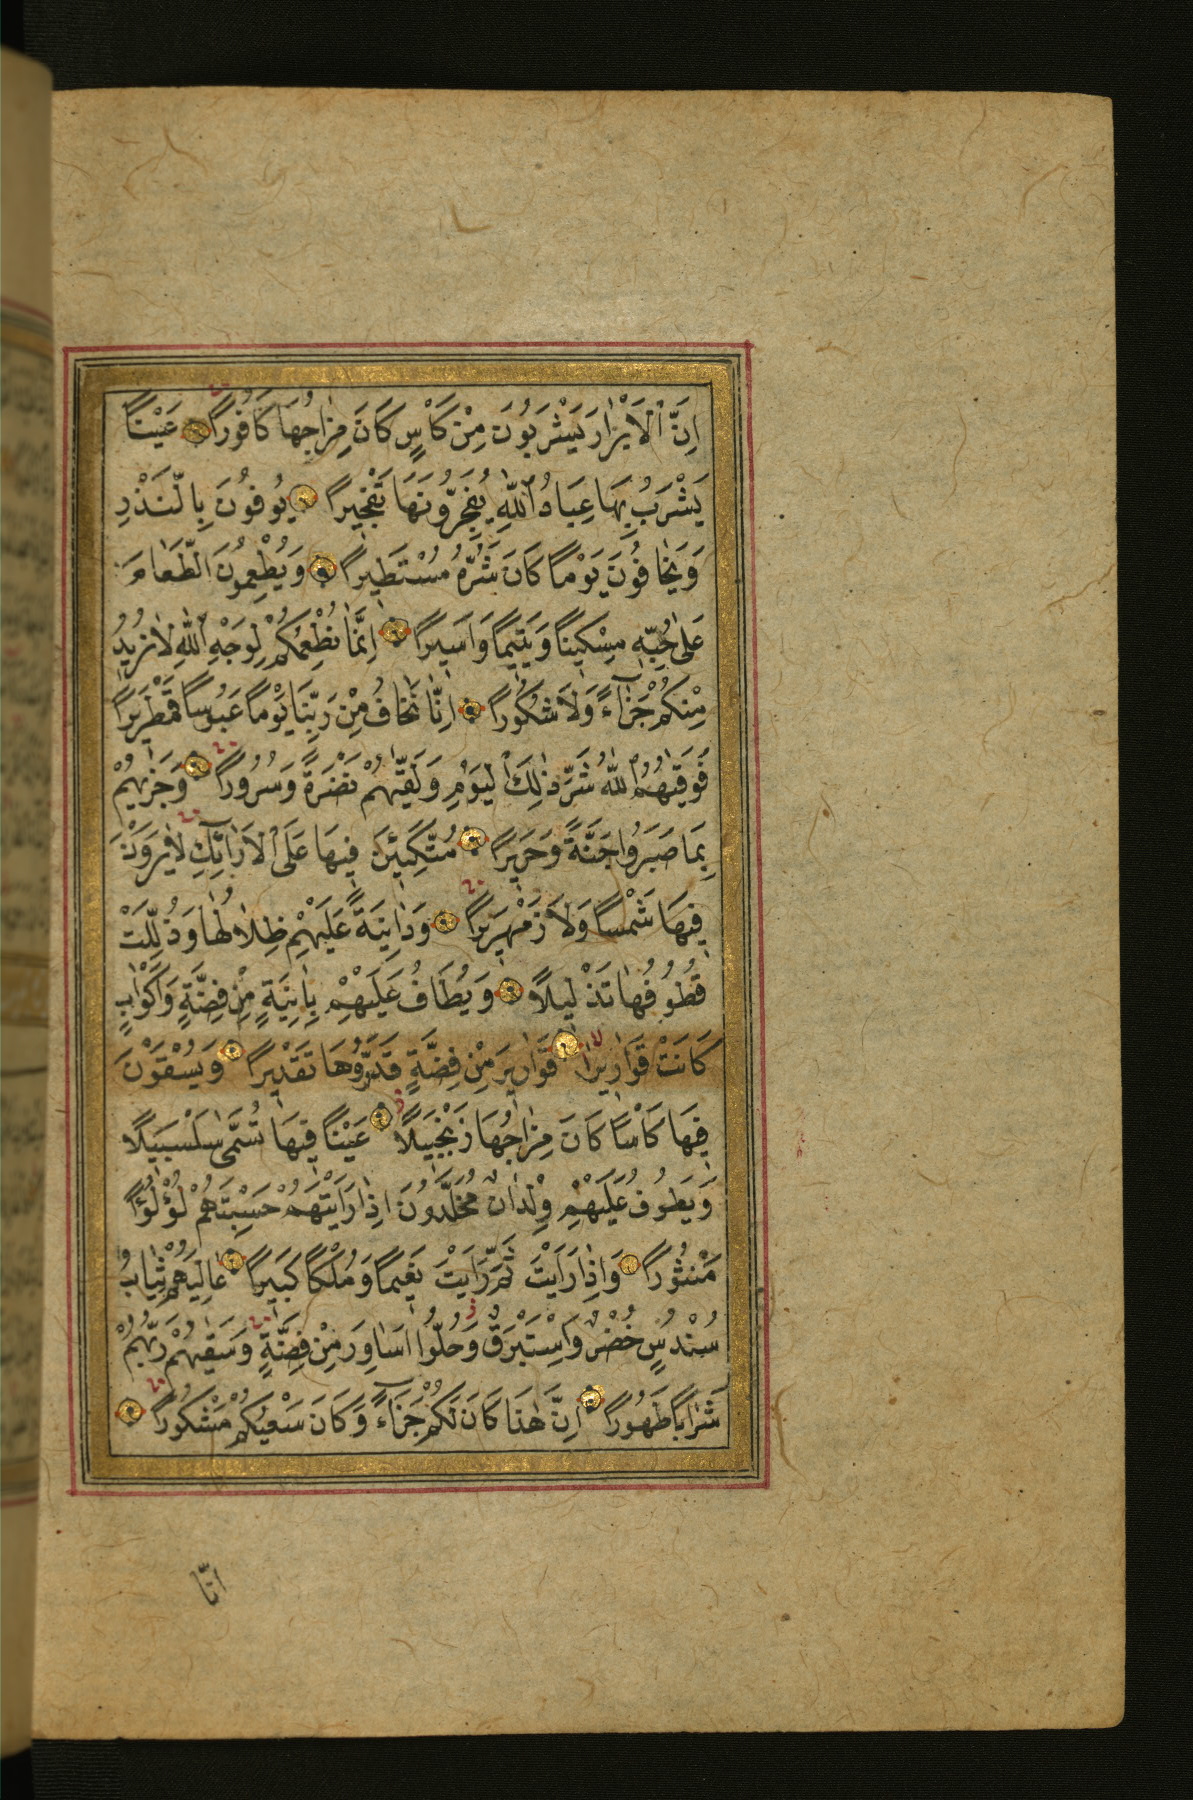 اِنَّ الْاَبْرَارَ يَشْرَبُونَ مِنْ كَاْسٍ كَانَ مِزَاجُهَا كَافُورًا عَيْنًا
يَشْرَبُ بِهَا عِبَادُ اللّٰهِ يُفَجِّرُونَهَا تَفْجِيرًا يُوفُونَ بِالنَّذْرِ
وَيَخَافُونَ يَوْمًا كَانَ شَرُّهُ مُسْتَطِيرًا وَيُطْعِمُونَ الطَّعَامَ
عَلٰى حُبِّهٖ مِسْكِينًا وَيَتِيمًا وَاَسِيرًا اِنَّمَا نُطْعِمُكُمْ لِوَجْهِ اللّٰهِ لَا نُرِيدُ
مِنْكُمْ جَزَآءً وَلَا شُكُورًا اِنَّا نَخَافُ مِنْ رَبِّنَا يَوْمًا عَبُوسًا قَمْطَرِيرًا
فَوَقٰيهُمُ اللّٰهُ شَرَّ ذٰلِكَ الْيَوْمِ وَلَقّٰيهُمْ نَضْرَةً وَسُرُورًا وَجَزٰيهُمْ
بِمَا صَبَرُوا جَنَّةً وَحَرِيرًا مُتَّكِئِينَ فِيهَا عَلَى الْاَرَآئِكِ لَا يَرَوْنَ
فِيهَا شَمْسًا وَلَا زَمْهَرِيرًا وَدَانِيَةً عَلَيْهِمْ ظِلَالُهَا وَذُلِّلَتْ
قُطُوفُهَا تَذْلِيلًا وَيُطَافُ عَلَيْهِمْ بِاٰنِيَةٍ مِنْ فِضَّةٍ وَاَكْوَابٍ
كَانَتْ قَوَارِيرَا لا قَوَارِيرَ مِنْ فِضَّةٍ قَدَّرُوهَا تَقْدِيرًا وَيُسْقَوْنَ
فِيهَا كَاْسًا كَانَ مِزَاجُهَا زَنْجَبِيلًا عَيْنًا فِيهَا تُسَمّٰى سَلْسَبِيلًا
وَيَطُوفُ عَلَيْهِمْ وِلْدَانٌ مُخَلَّدُونَ اِذَا رَاَيْتَهُمْ حَسِبْتَهُمْ لُؤْلُؤًا
مَنْثُورًا وَاِذَا رَاَيْتَ ثَمَّ رَاَيْتَ نَعِيمًا وَمُلْكًا كَبِيرًا عَالِيَهُمْ ثِيَابُ
سُنْدُسٍ خُضْرٌ وَاِسْتَبْرَقٌ وَحُلُّوا اَسَاوِرَ مِنْ فِضَّةٍ وَسَقٰيهُمْ رَبُّهُمْ
شَرَابًا طَهُورًا اِنَّ هٰذَا كَانَ لَكُمْ جَزَآءً وَكَانَ سَعْيُكُمْ مَشْكُورًا
اِنَّا